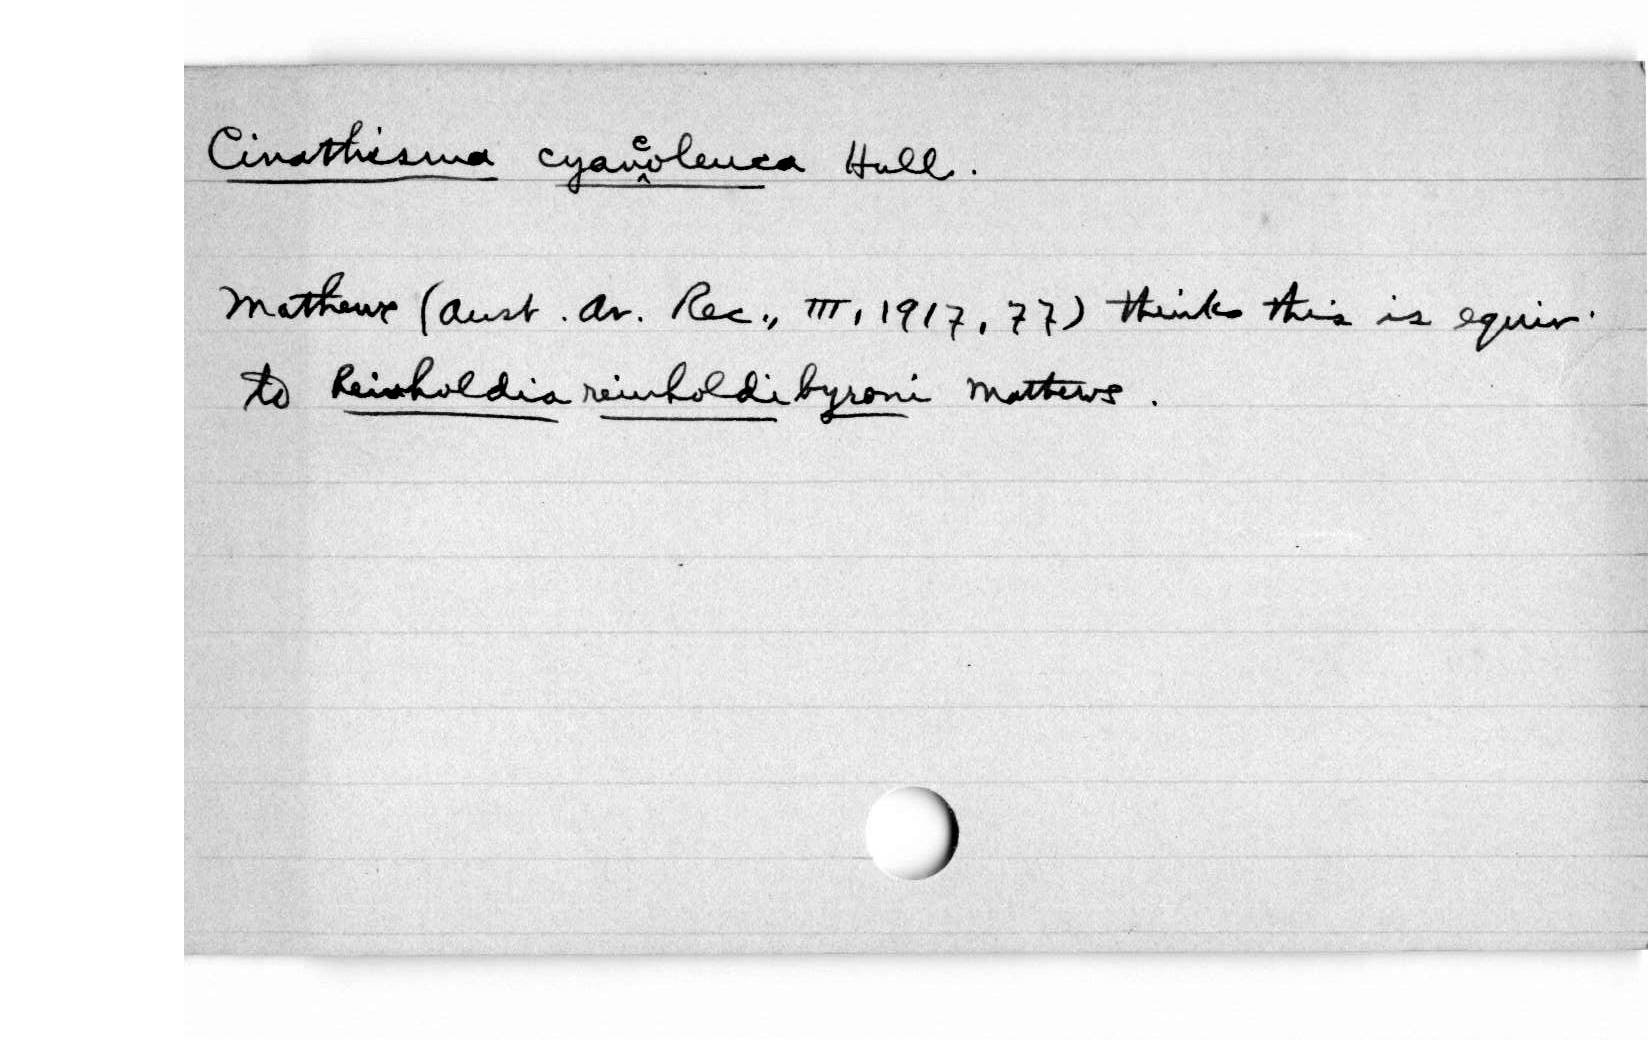 Cinathisma cyaneoleuca Hull.
Mathews (Aust. Av. Rec., III, 1917, 77) thinks this is equiv.
to Reinholdia reinholdi byroni Mathews.